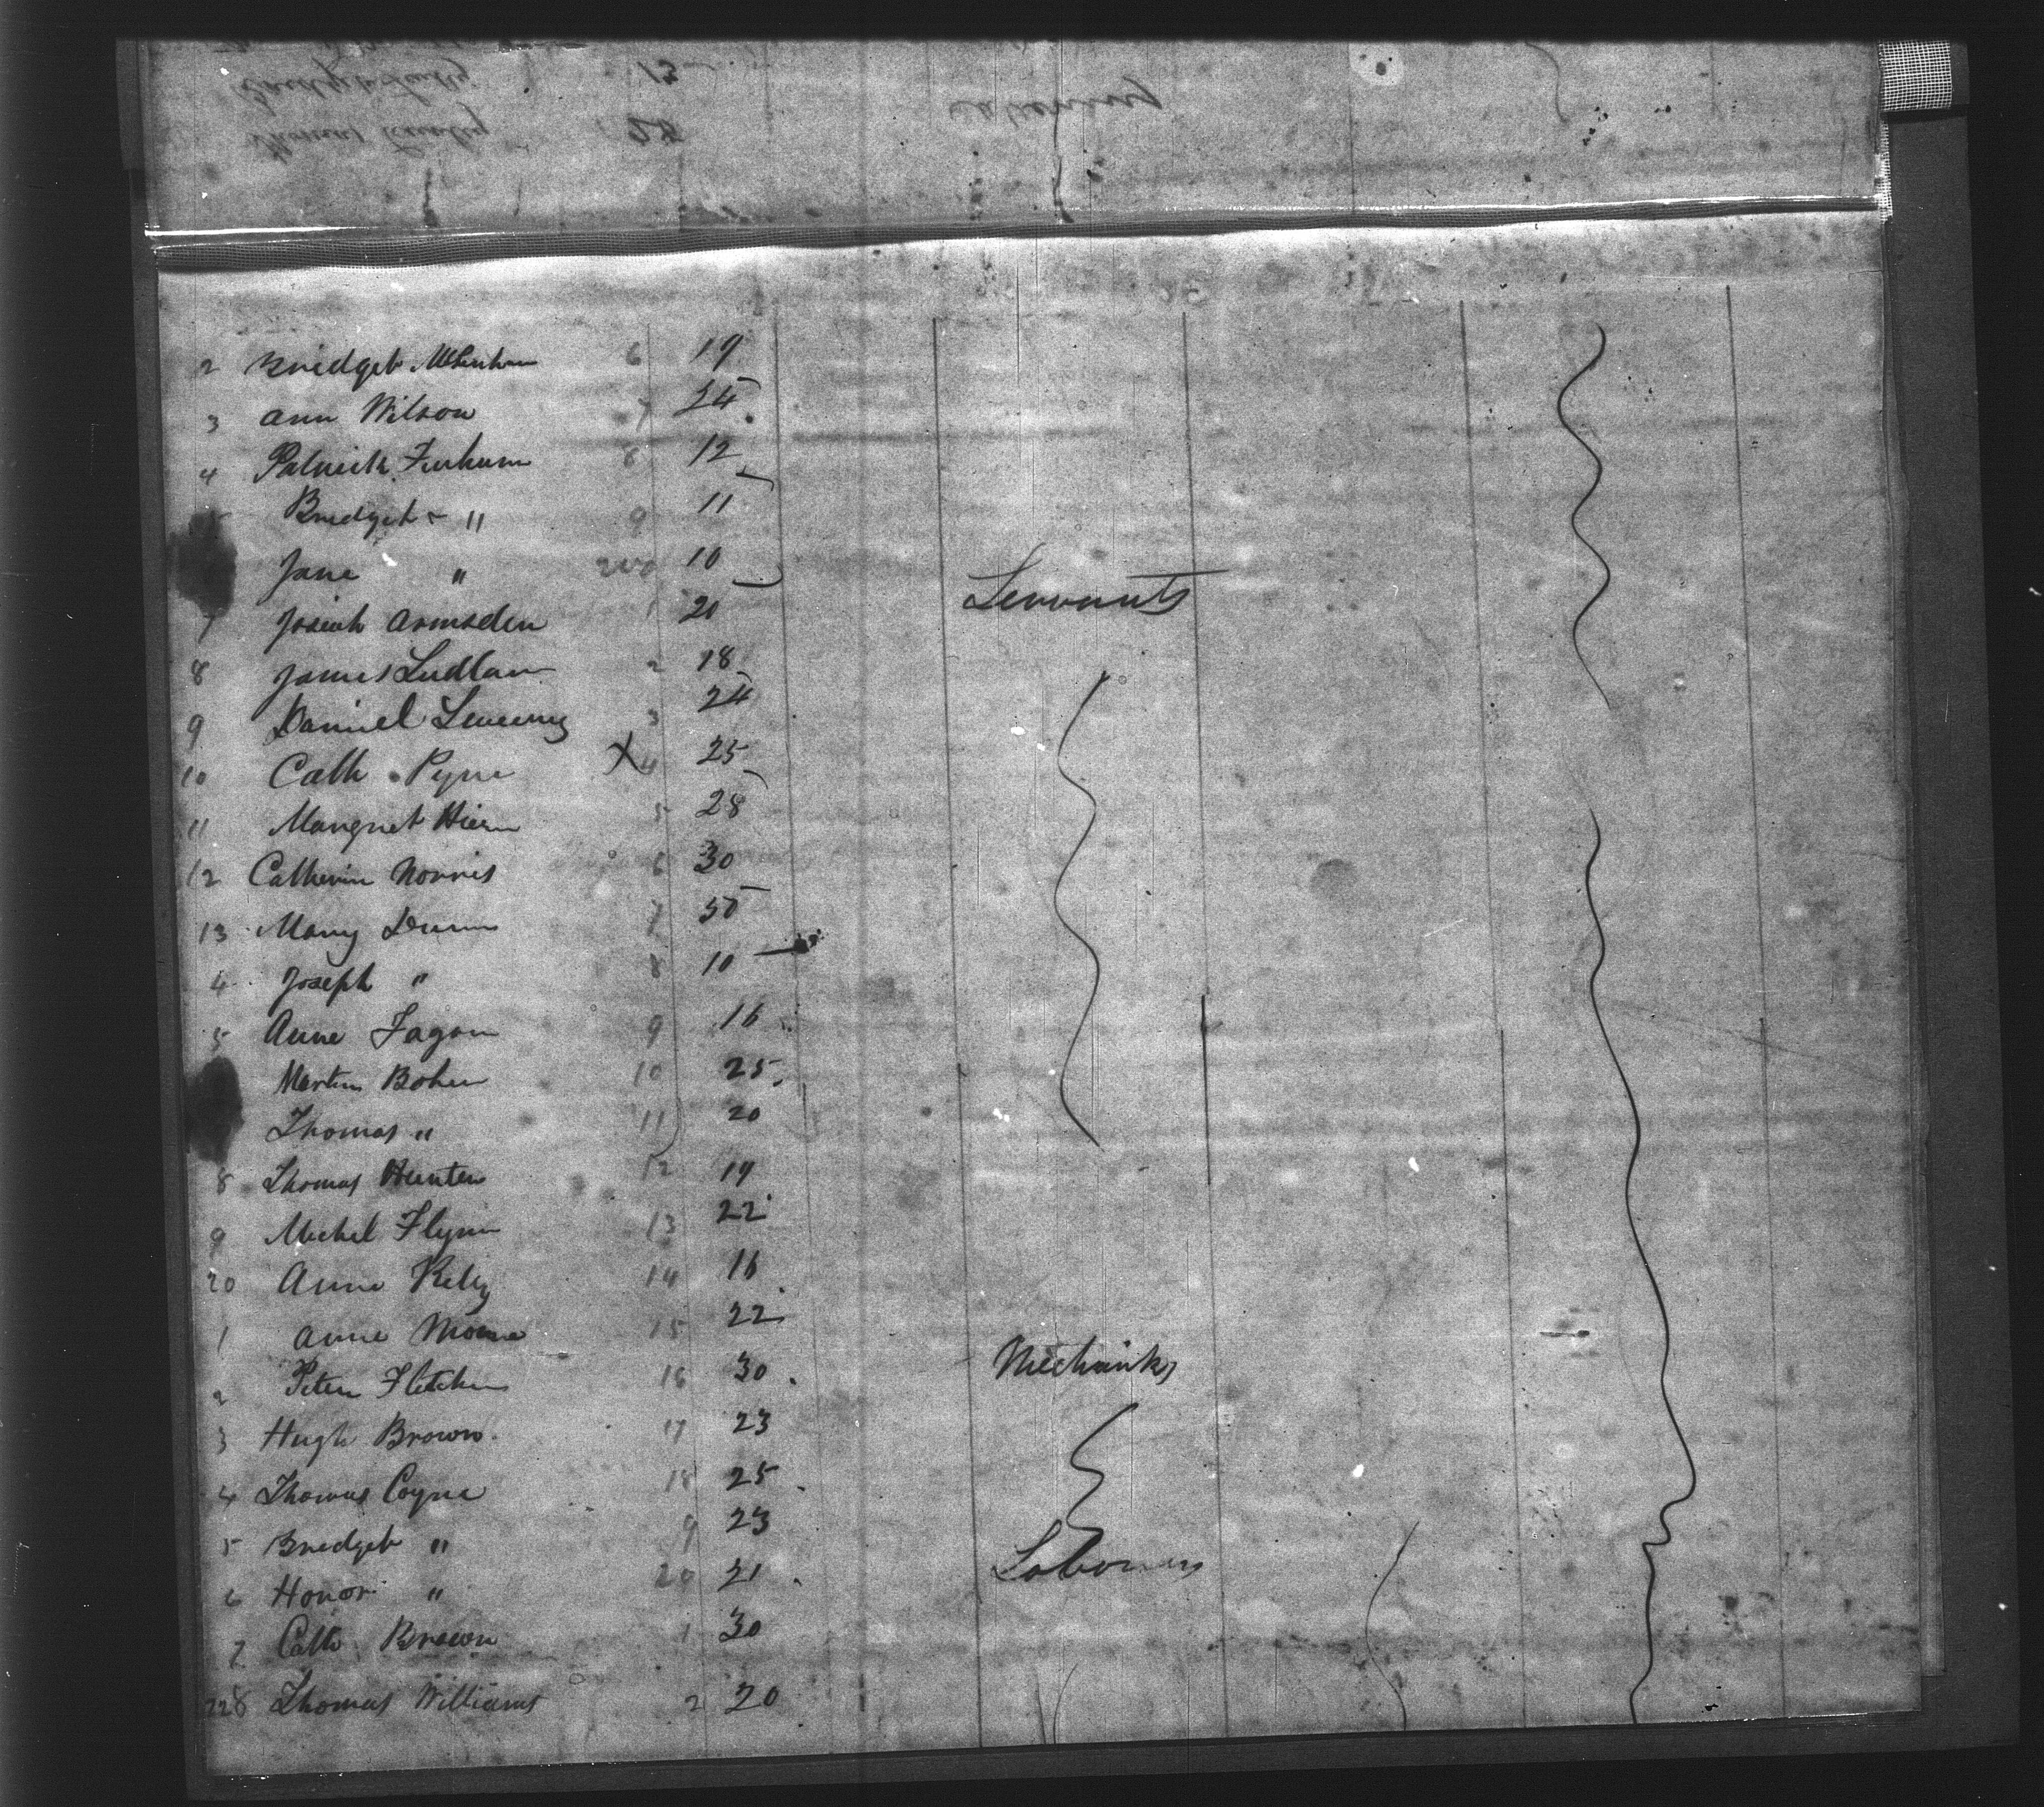 2 Bridget 6 19
3 Ann Wilson 7 24
4 Patrick Finham 8 12
Bridget " 9 11
Jane " 200 10
Servants
7 Josiah Armsden 1 20
8 James Ludlam 2 18
9 Daniel Sweeny 3 24
10 Cath Pyne X 4 25
11 Margret Hiern 5 28
12 Catherin Norris 6 30
13 Mary Dunn 7 50
4 Joseph " 8 10
5 Anne Fagan 9 16
Martin Bohen 10 25
Thomas " 11 20
8 Thomas Hunter 12 19
9 Michel Flynn 13 22
20 Anne Kelly 14 16
1 Anne Moore 15 22
Mechanicks
2 Peter Fletcher 16 30
3 Hugh Brown 17 23
4 Thomas Coyne 18 25
5 Bridget " 9 23
Laborers
6 Honor " 20 21
7 Cath Brown 1 30
228 Thomas Williams 2 20